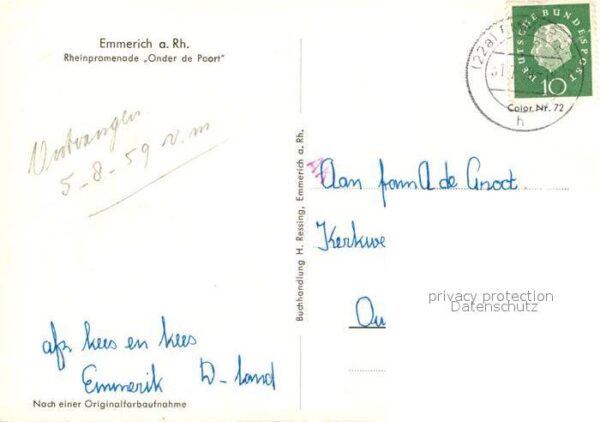 Emmerich a. Rh.
Rheinpromenade „Onder de Poort"
DEUTSCHE BUNDESPOST
10
(22a)
h
Color Nr. 72
5-8-59 v.m
Buchhandlung H. Ressing, Emmerich a. Rh.
Aan fam A de Groot
Kerkwe
Ou
privacy protection
Datenschutz
afz kees en kees
Emmerik D-land
Nach einer Originalfarbaufnahme